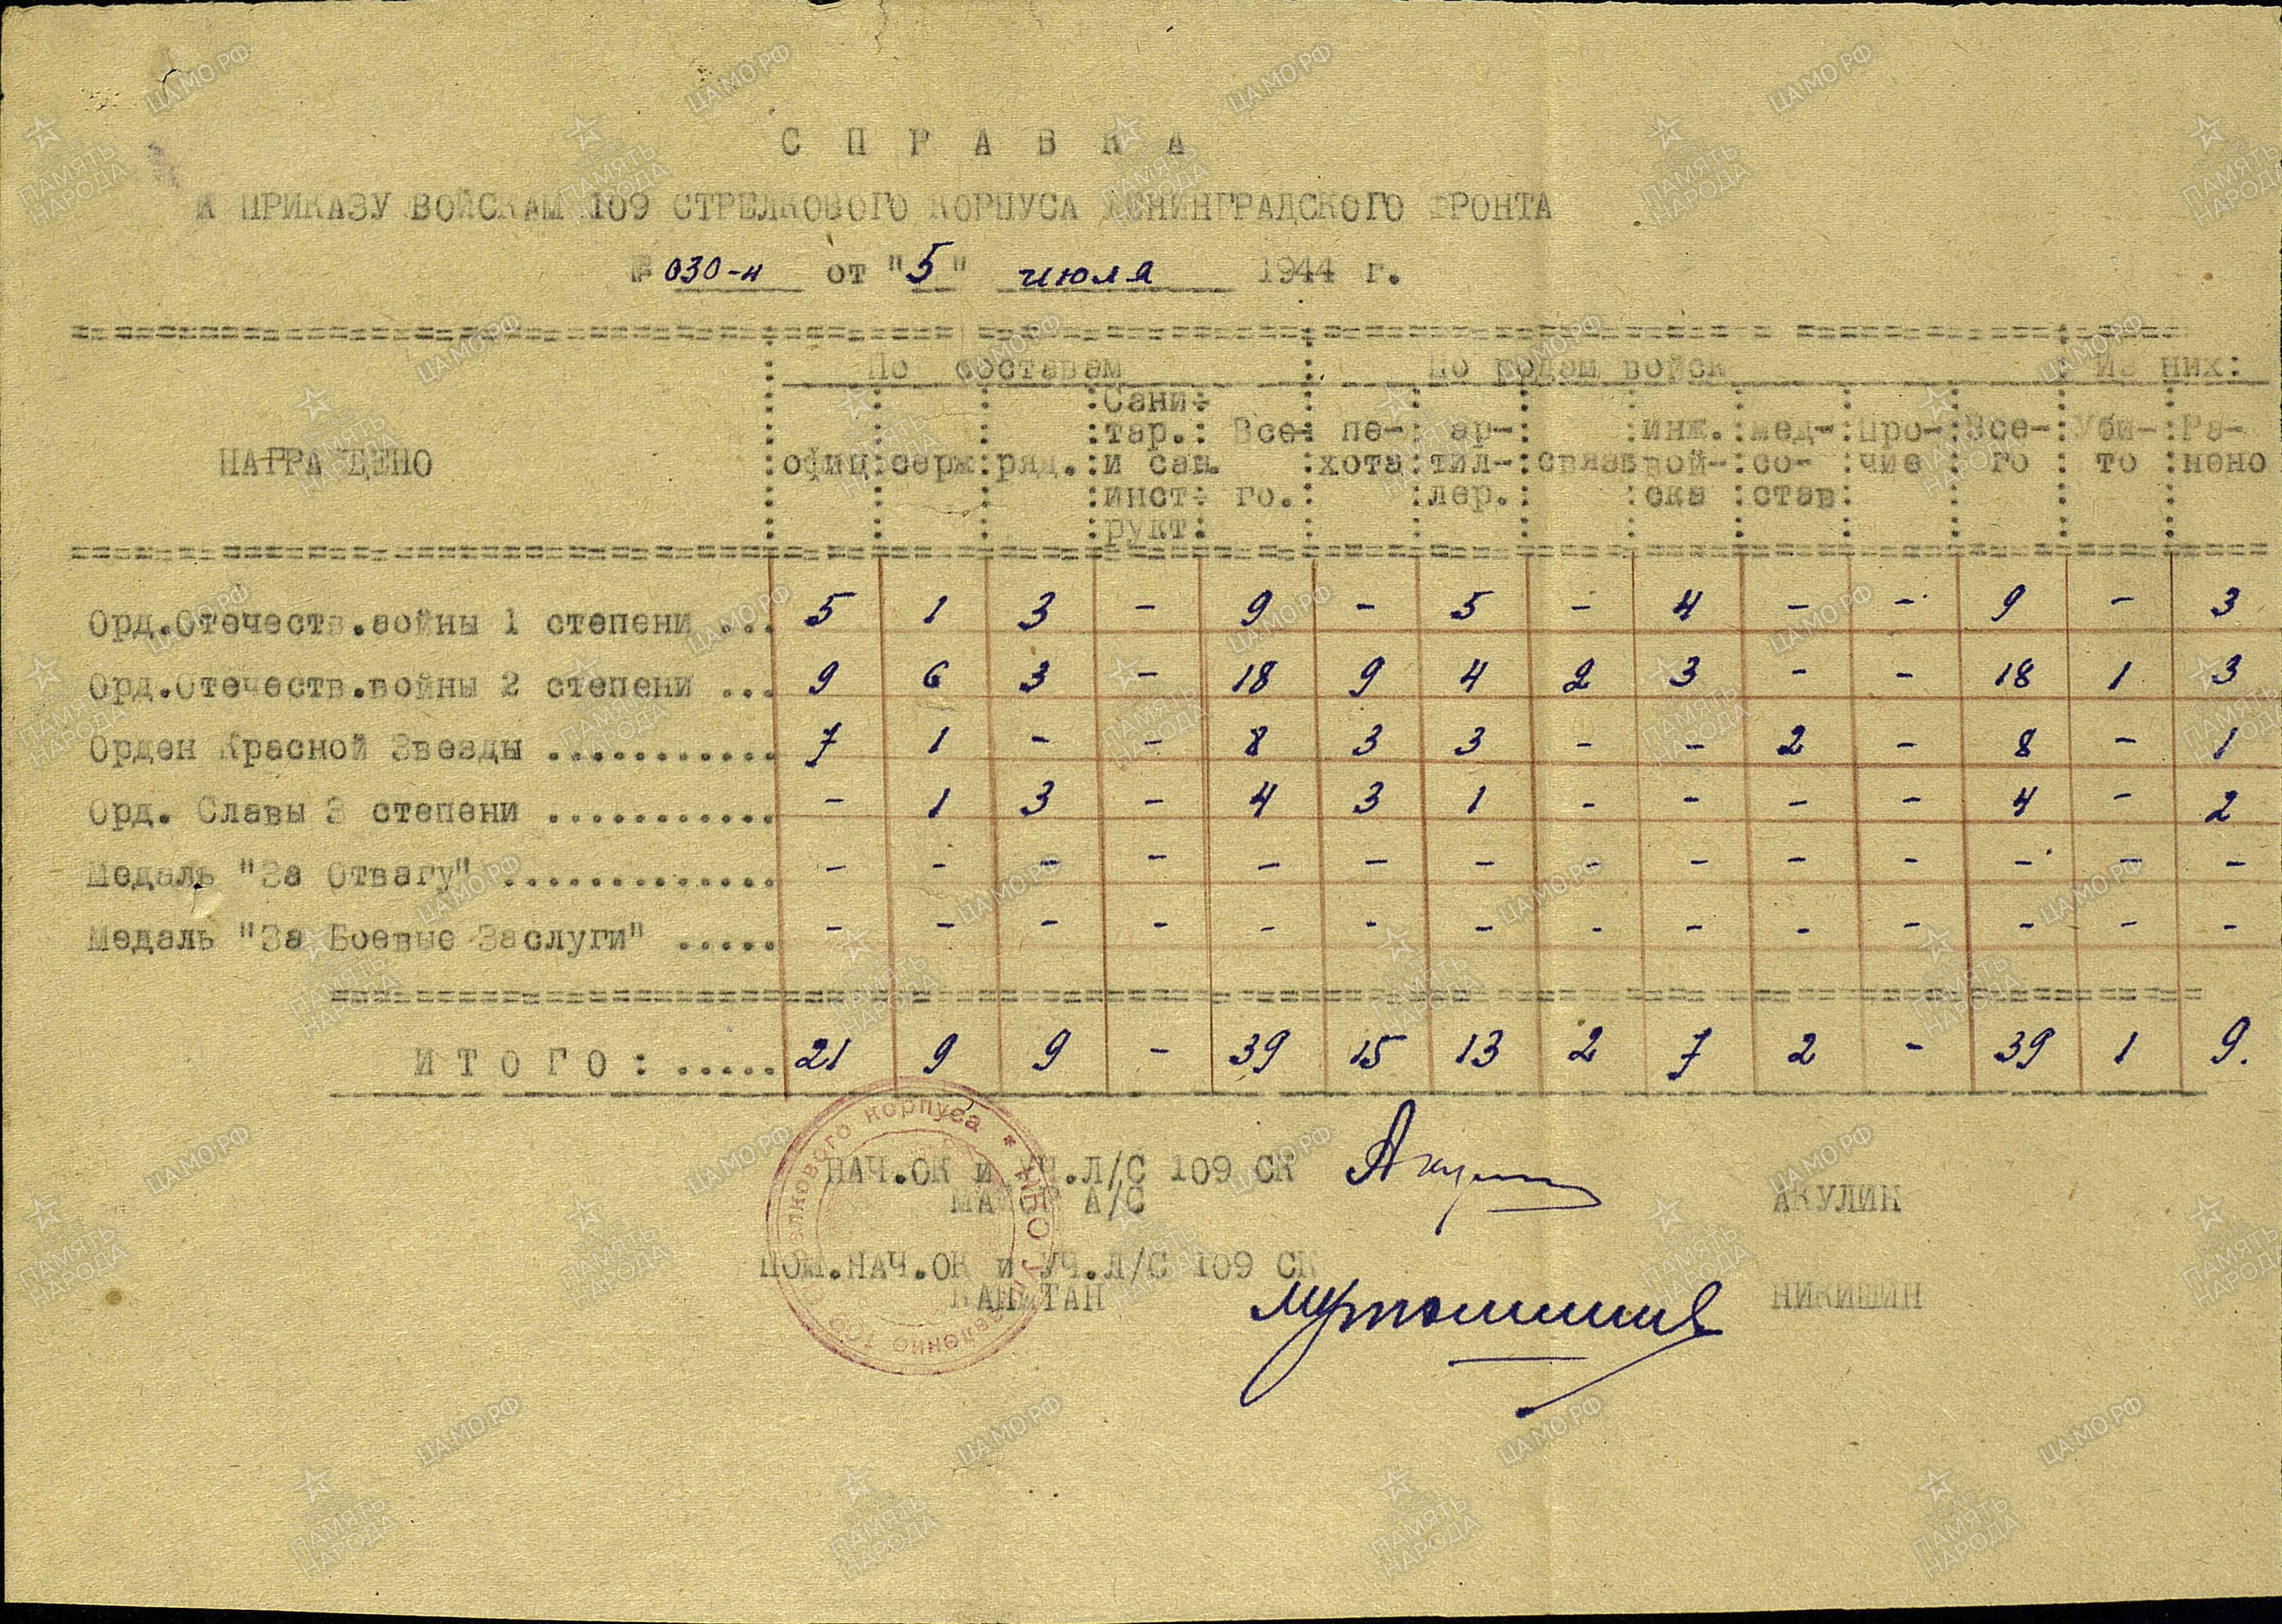 С П Р А В К А
К ПРИКАЗУ ВОЙСКАМ 109 СТРЕЛКОВОГО КОРПУСА ЛЕНИНГРАДСКОГО ФРОНТА
№ 030-н от "5" июля 1944 г.
НАГРАЖДЕНО По составам По родам войск Из них:
офиц. серж. ряд. Санитар. и сан. инструкт. Все-го. пе-хота ар-тил-лер. связь инж. вой-ска мед-со-став Про-чие Все-го Уби-то Ра-нено
Орд.Отечеств.войны 1 степени ... 5 1 3 - 9 - 5 - 4 - - 9 - 3
Орд.Отечеств.войны 2 степени ... 9 6 3 - 18 9 4 2 3 - - 18 1 3
Орден Красной Звезды ........... 7 1 - - 8 3 3 - - 2 - 8 - 1
Орд. Славы 3 степени ........... - 1 3 - 4 3 1 - - - - 4 - 2
Медаль "За Отвагу" ............. - - - - - - - - - - - - - -
Медаль "За Боевые Заслуги" ..... - - - - - - - - - - - - - -
И Т О Г О : ..... 21 9 9 - 39 15 13 2 7 2 - 39 1 9.
НАЧ.ОК и УЧ.Л/С 109 СК
МАЙОР А/С АКУЛИН
ПОМ.НАЧ.ОК и УЧ.Л/С 109 СК
КАПИТАН НИКИШИН